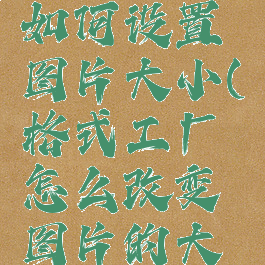 如何设置
图片大小(
格式工厂
怎么改变
图片的大